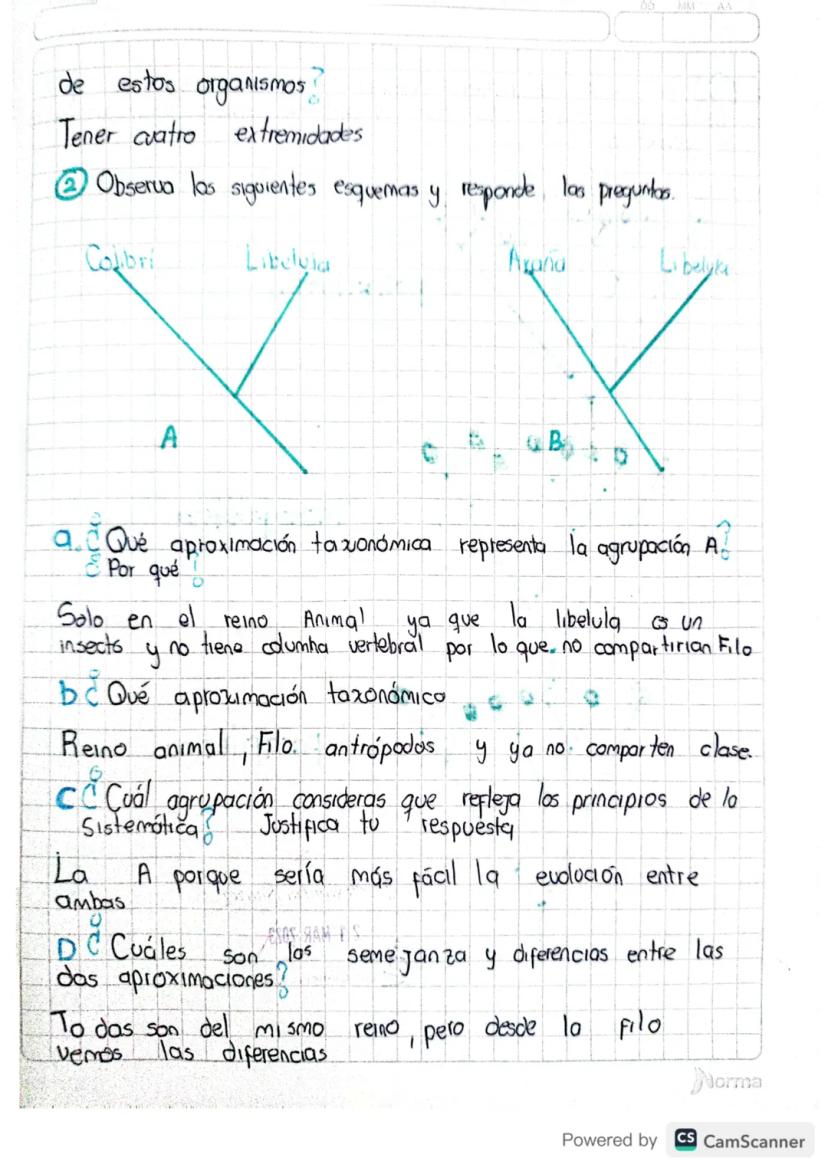 DD MM AA
de estos organismos?
Tener cuatro extremidades
② Observa los siguientes esquemas y responde las preguntas.
Colibrí Libelula Araña Libelula
A B
a. ¿Qué aproximación taxonómica representa la agrupación A?
¿Por qué?
Solo en el reino Animal ya que la libelula es un
insecto y no tiene columna vertebral por lo que no compartirian Filo
b ¿Qué aproximación taxonómico
Reino animal, Filo antrópodos y ya no comparten clase.
C ¿Cuál agrupación consideras que refleja los principios de la
Sistemática? Justifica tu respuesta
La A porque sería más fácil la evolución entre
ambas
D ¿Cuáles son las semejanza y diferencias entre las
dos aproximaciones?
Todas son del mismo reino, pero desde lo Filo
vemos las diferencias
Norma
Powered by CS CamScanner